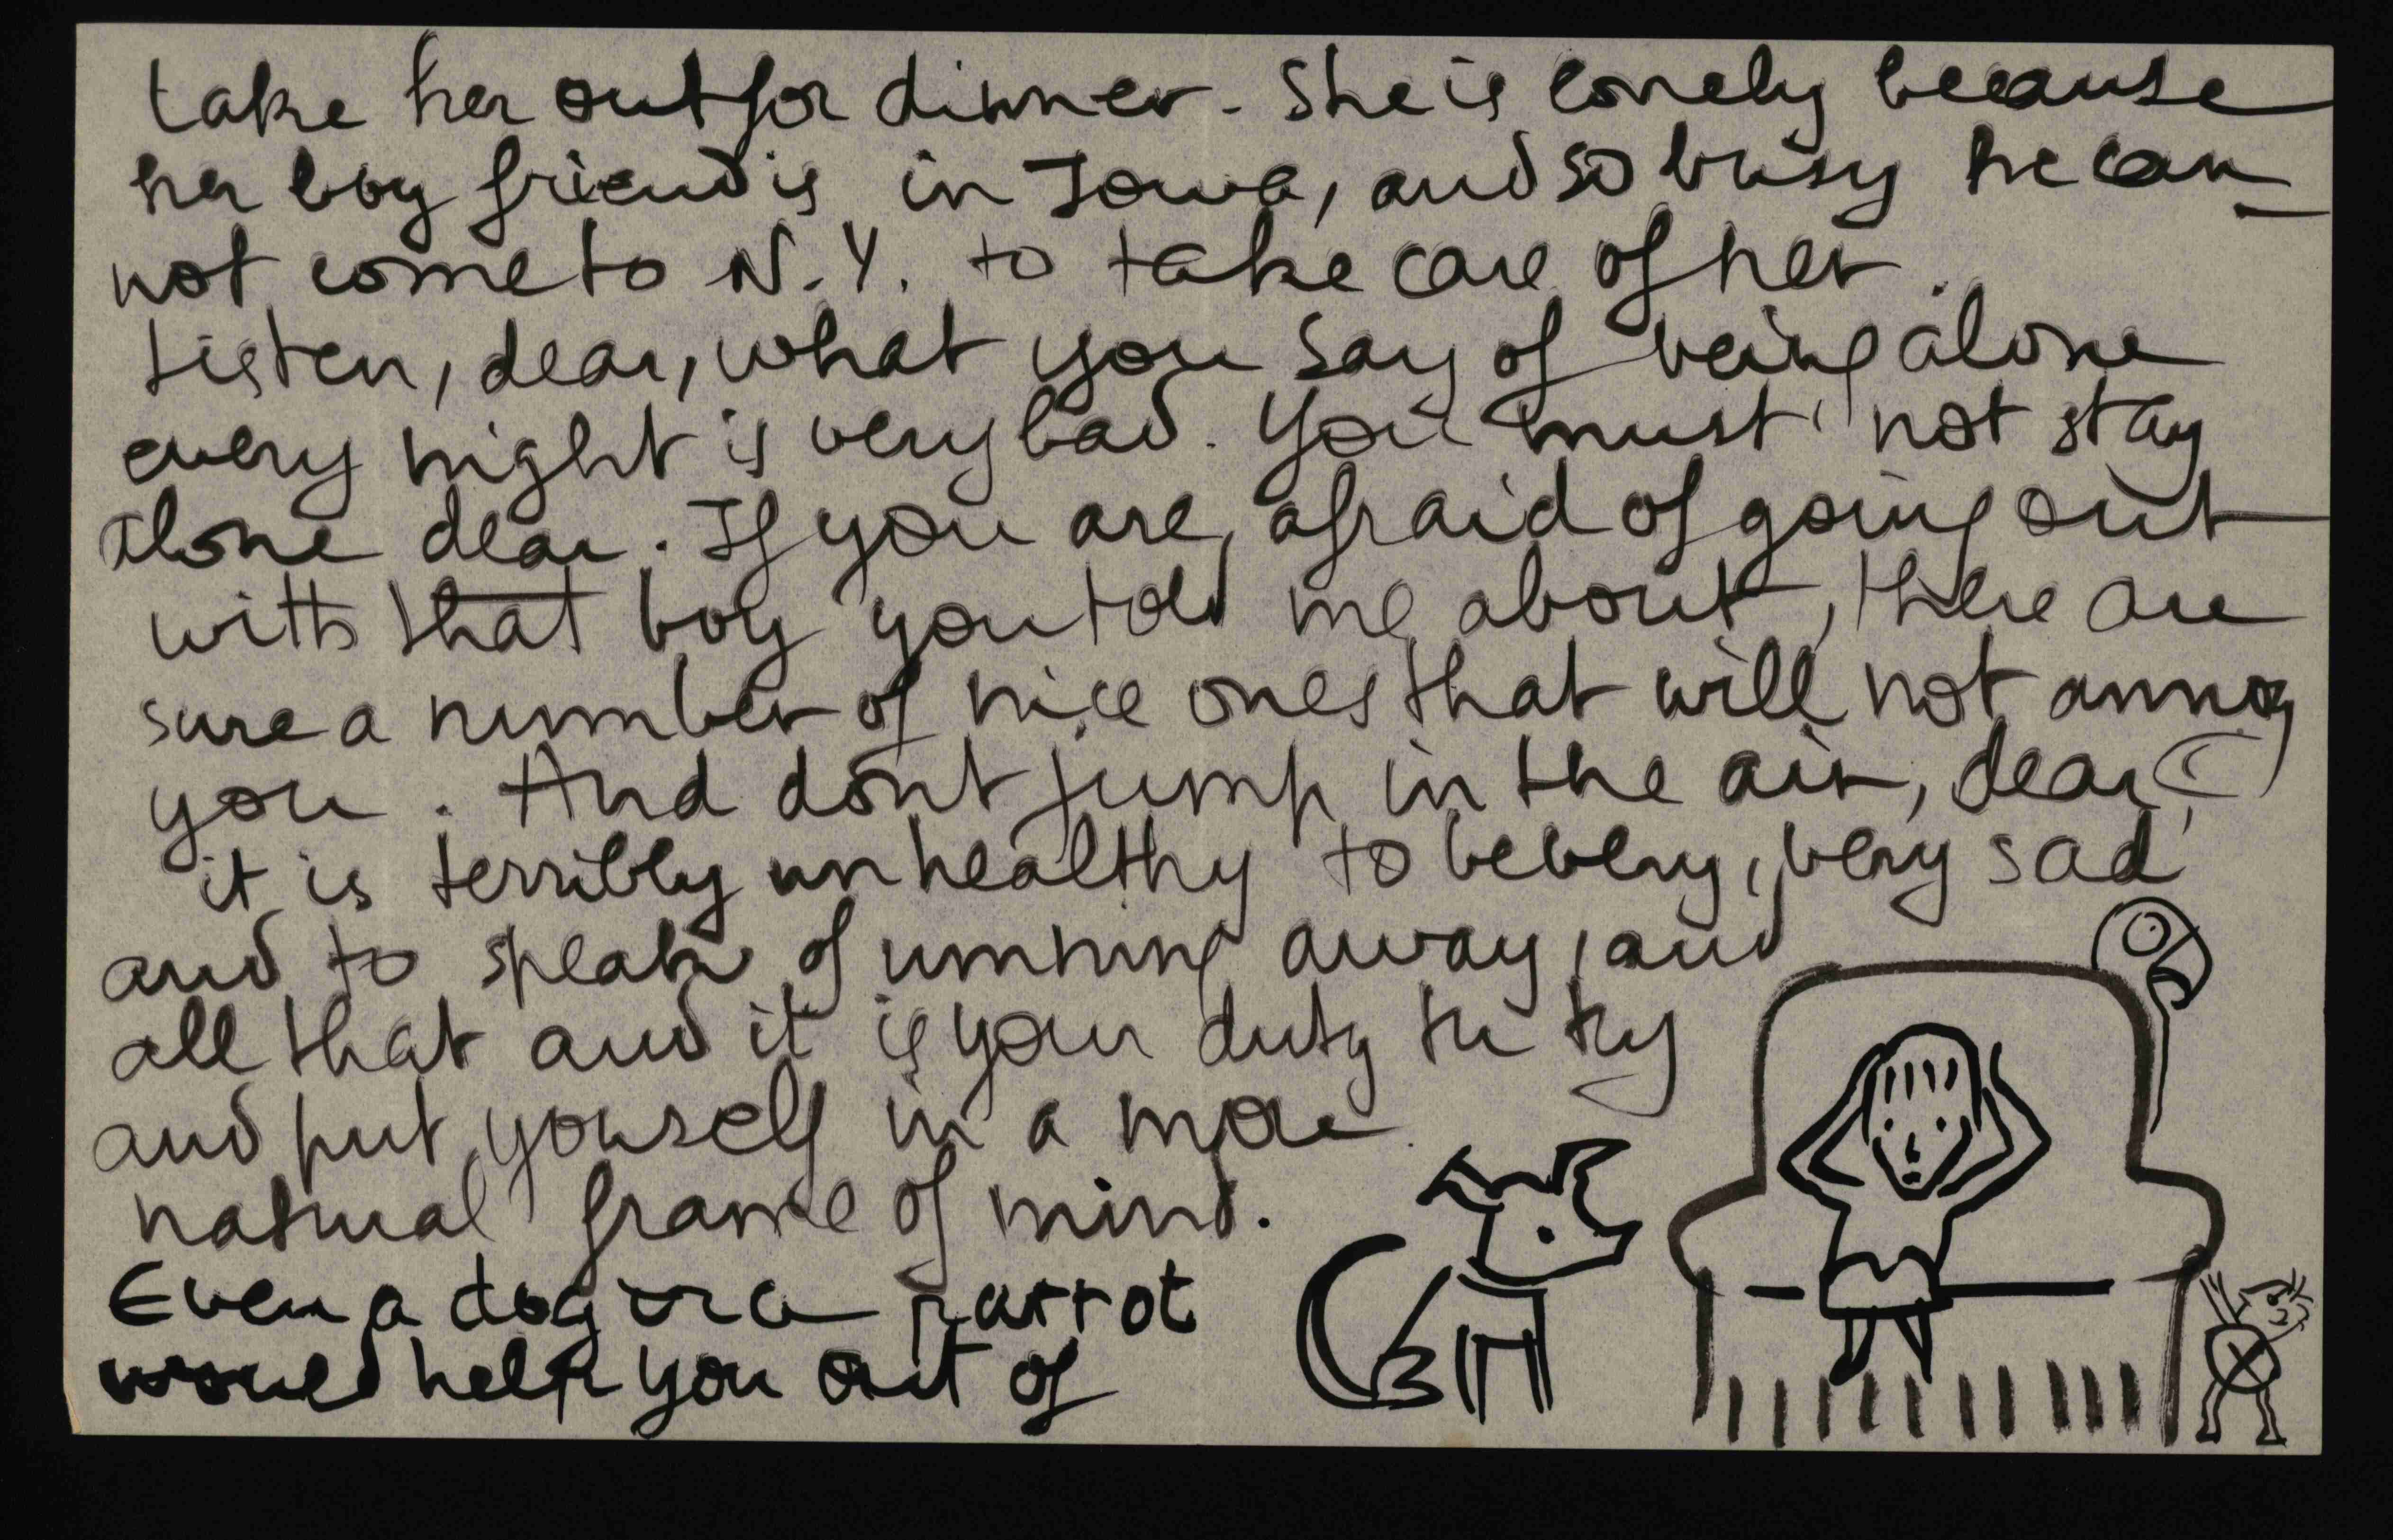 take her out for dinner. She is lonely because
her boy friend is in Iowa, and so busy he can
not come to N.Y. to take care of her.
Listen, dear, what you say of being alone
every night is very bad. You must not stay
alone dear. If you are afraid of going out
with that boy you told me about, there are
sure a number of nice ones that will not annoy
you. And dont jump in the air, dear,
it is terribly unhealthy to be very, very sad
and to speak of running away, and
all that and it is your duty to try
and put yourself in a more
natural frame of mind.
Even a dog or a parrot
would help you out of